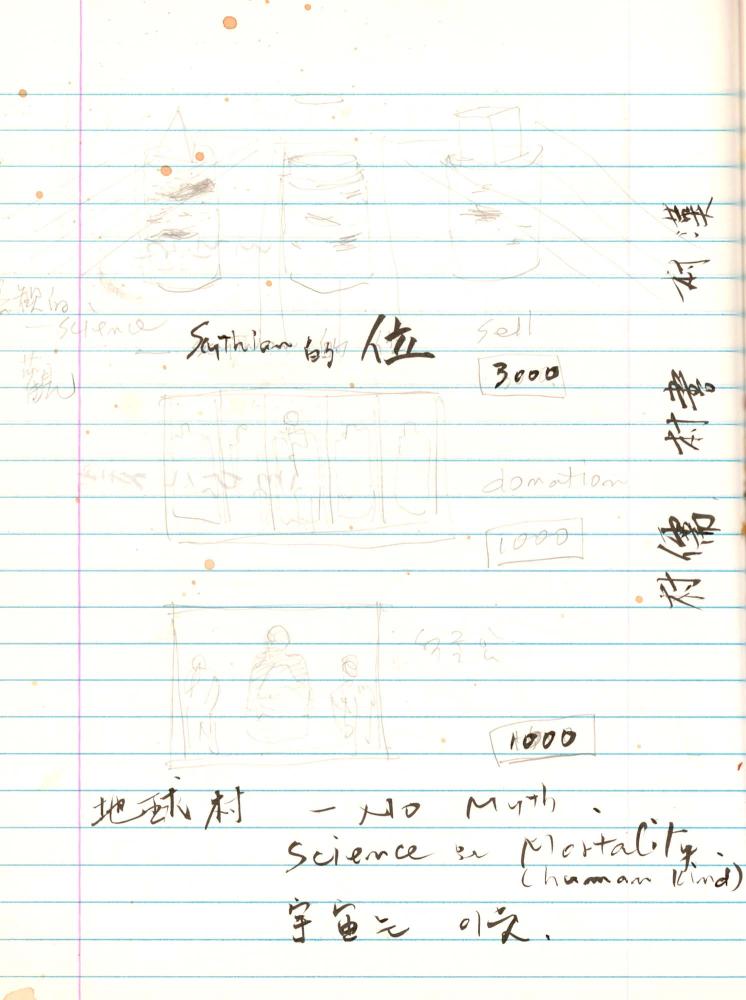 觀的、
— science
Scythian 的 位
Sell
3000
donation
1000
1000
地球村 — No Myth.
Science 와 Mortality.
(human kind)
宇宙는 이웃.
村儒 村書 村漢